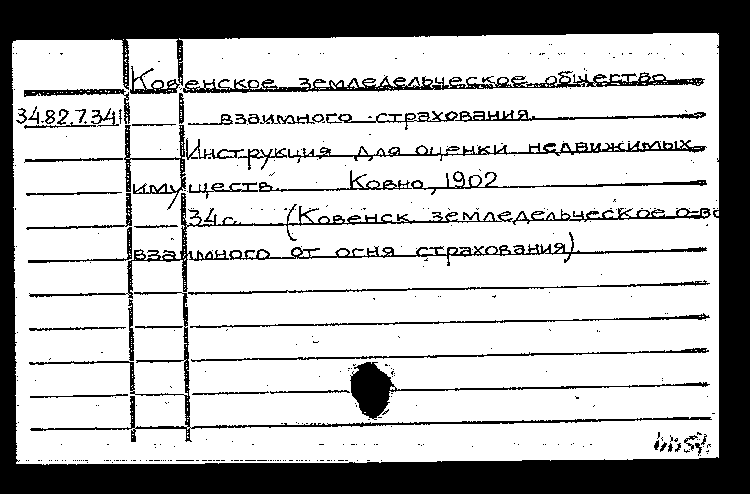 Ковенское земледельческое общество
34.82.7.341 взаимного страхования.
Инструкция для оценки недвижимых
имуществ. Ковно, 1902
34 с. (Ковенск. земледельческое о-во
взаимного от огня страхования).